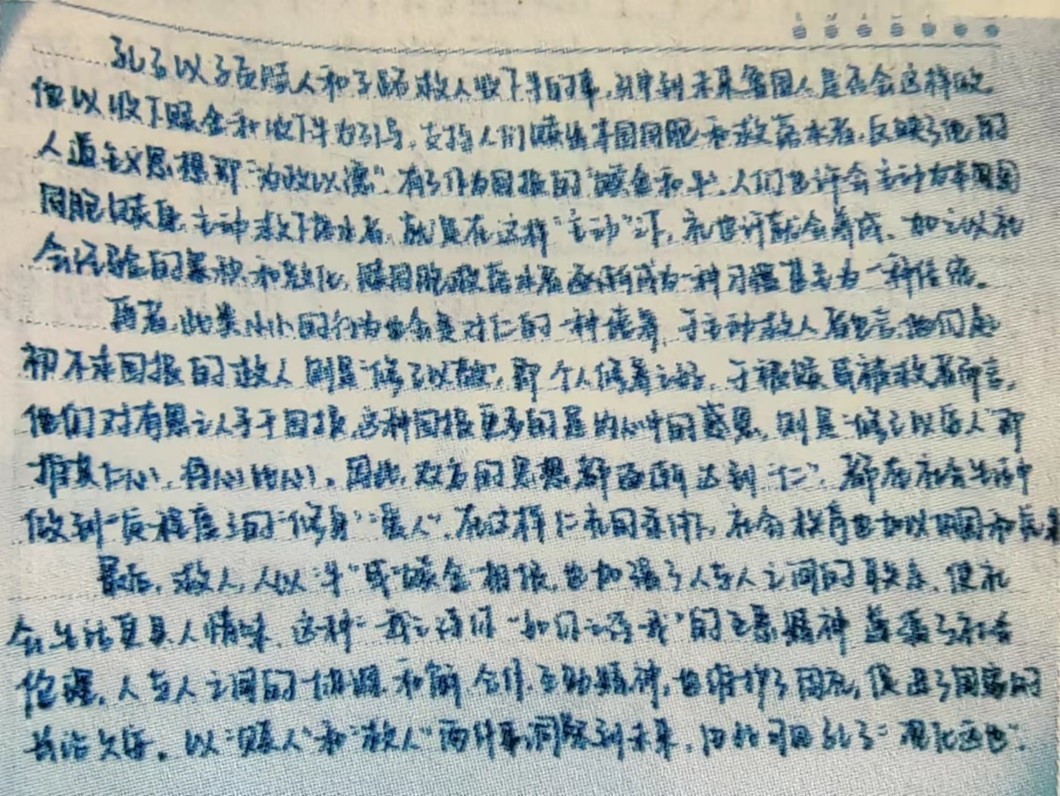 孔子以子贡赎人和子路救人收下牛的事,讲到未来鲁国人是否会这样做
他以收下赎金和收下牛为引导,支持人们赎出本国同胞和救落水者,反映了他的
人道主义思想即"为政以德"。有了作为回报的"赎金和牛",人们也许会主动为本国
同胞赎身,主动救下落水者,就是在这样"主动"下,礼也许就会养成,加之以社
会经验的累积和教化,赎同胞救落水者逐渐成为一种习惯甚至为一种传统。
再者,此类小小的行为也会是对仁的一种培养,于主动救人者而言,他们起
初不求回报的救人则是"修己以敬",即个人修养之好,于被赎或被救者而言,
他们对有恩之人予于回报,这种回报更多的是内心中的感恩,则是"修己以安人"即
推其仁心,将心比心。因此,双方的思想都逐渐达到"仁",都在社会生活中
做到一定程度上的"修身""爱人",在这样仁本同条件下,社会教育也加以巩固和
最后,救人,人以"牛"或"赎金"相报,也加强了人与人之间的联系,使社
会生活更具人情味,这种"我之待你一如你之待我"的互惠精神 了社会
伦理,人与人之间的协调、和解、合作、互助精神,也维护了因而,促进了国家的
长治久安。以"赎人"和"救人"两件事,洞察到未来,由此可见孔子"观化远也"。